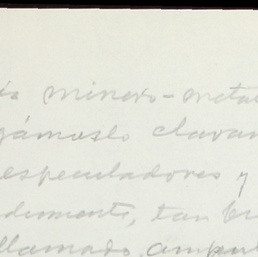 ia minero-meta
gámuslo clavan
especuladores y
diumente, tan bu
llamado, ampar